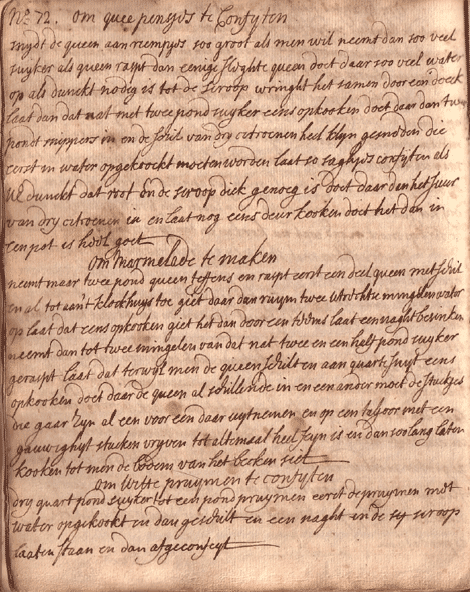 No. 72. om quee pensyds te Confyten
snydt de queen aan riempjes soo groot als men wil neemt dan soo veel
suyker als queen raspt dan eenige sleghte queen doet daar soo veel water
op als dunckt nodig is tot de siroop wringht het samen door een doeck
laat dan dat nat met twee pond suyker eens opkooken doet daar dan twee
pond snippers in en de schil van dry citroenen heel klyn gesneden die
eerst in water opgekoockt moeten worden laat so saghjes confyten als
UE dunckt dat root en de siroop dick genoeg is doet daar dan het suur
van dry citroenen in en laat nog eens deur kooken doet het dan in
een pot is heel goet
om Marmelade te maken
neemt maar twee pond queen teffens en raspt eerst een deel queen met schil
en al tot aan't klockhuys toe giet daar dan ruym twee mingelen water
op laat dat eens opkooken giet het dan door een teems laat een naght besincken
neemt dan tot twee mingelen van dat nat twee en een helf pond suyker
geraspt laat dat terwyl men de queen schilt en aan quarte snyt eens
opkooken doet daar de queen al schillende in en een ander moet de stuckjes
die gaar zyn al een voor een daar uytnemen en op een tafoor met een
stucken vryven tot altemaal heel fyn is en dan soo lang laten
kooken tot men de bodem van het becken siet
om Witte pruymen te confyten
dry quart pond suyker tot een pond pruymen eerst de pruymen met
water opgekookt en dan geschilt en een naght in de siroop
laaten staan en dan afgeconfyt